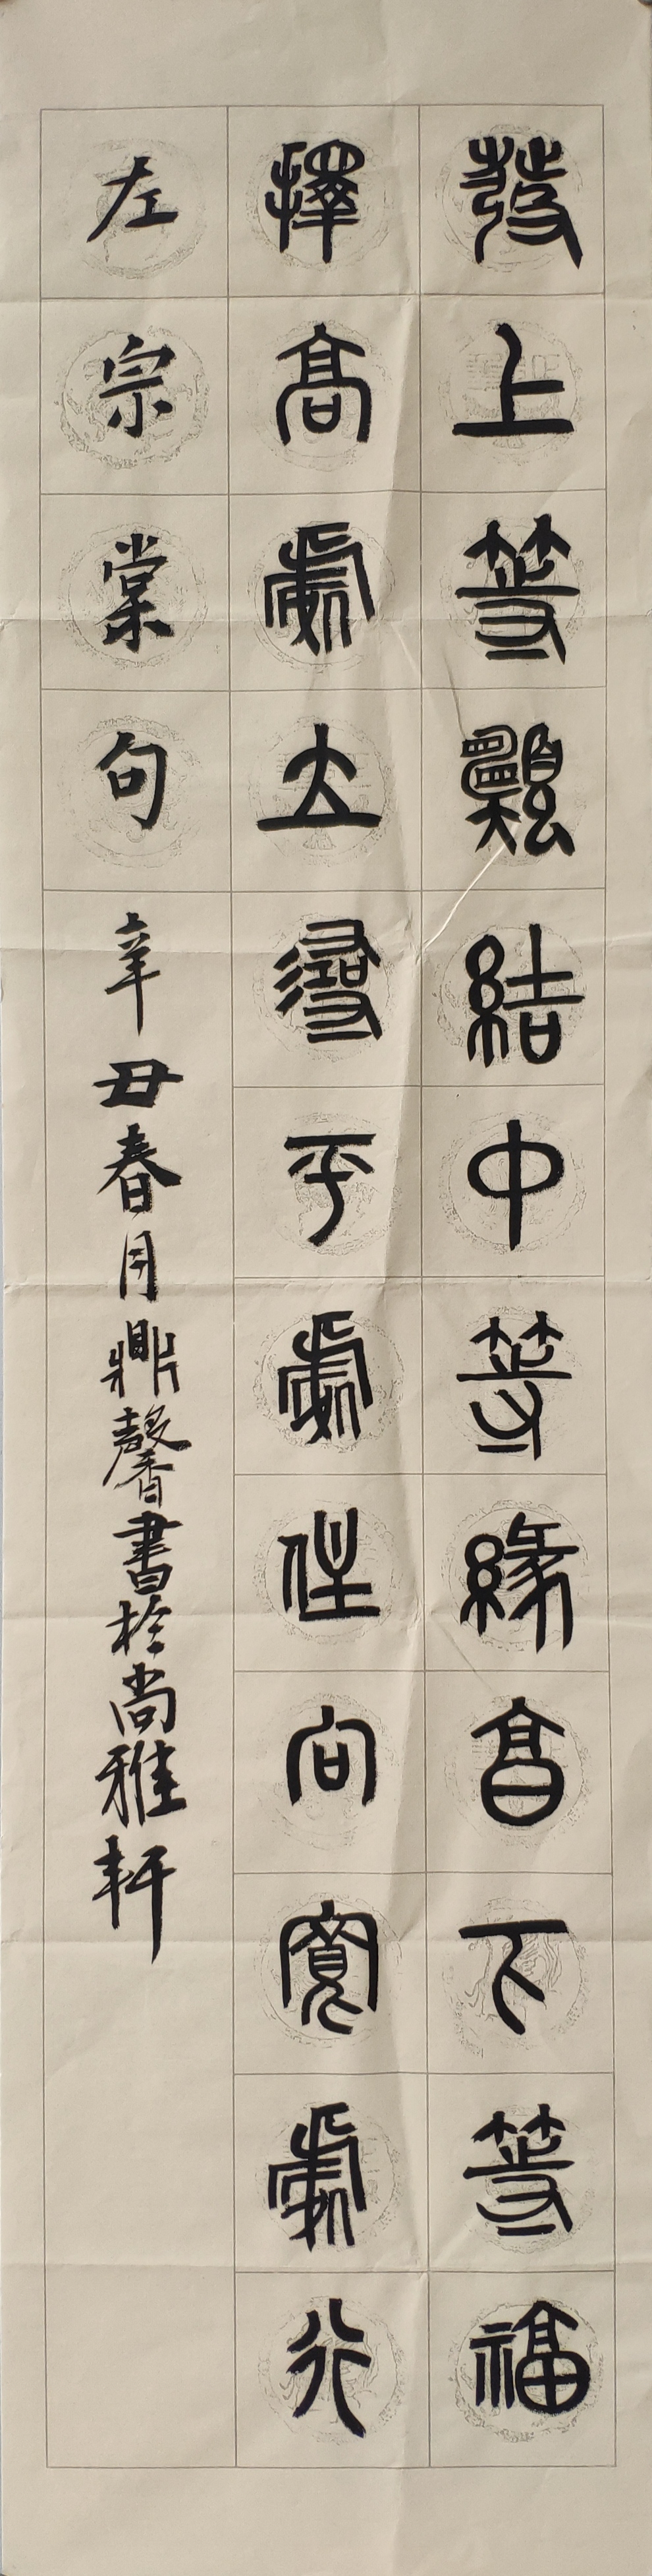 發上等願結中等緣享下等福
擇高處立尋平處住向寬處行
左宗棠句辛丑春月鼎馨書於尚雅軒